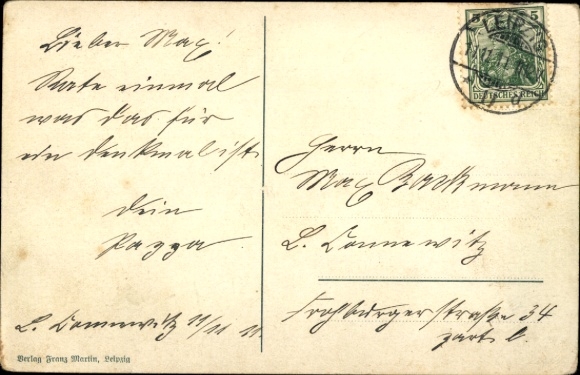 Lieber Max!
Rate einmal
was das für
ein Denkmal ist
Dein
Pappa.
L. Connewitz 11/11 11.
Verlag Franz Martin, Leipzig
5 5
DEUTSCHES REICH
LEIPZIG
Herrn
Max Backmann
L. Connewitz
Frohburgerstraße 34
part l.